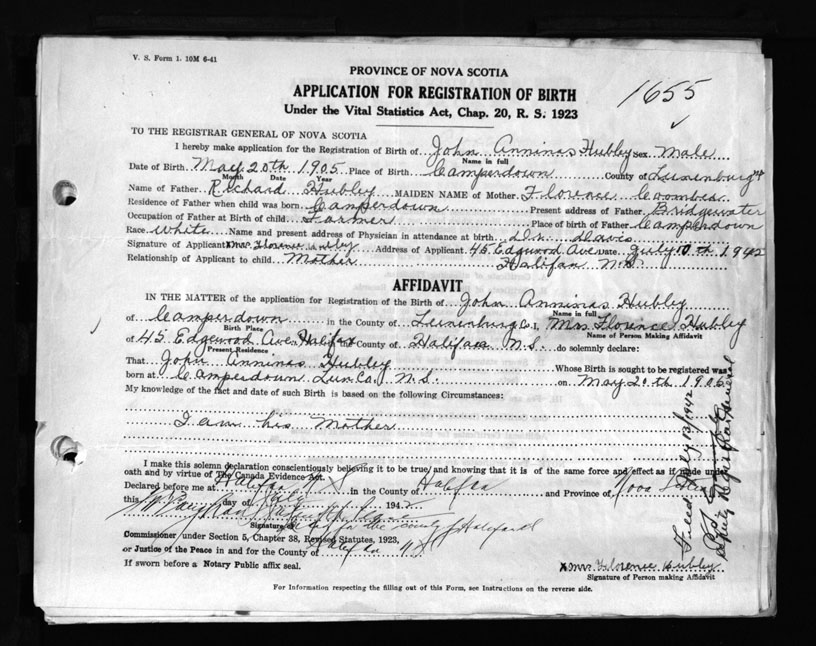 V. S. Form 1. 10M 6-41
PROVINCE OF NOVA SCOTIA
APPLICATION FOR REGISTRATION OF BIRTH
1655
Under the Vital Statistics Act, Chap. 20, R. S. 1923
TO THE REGISTRAR GENERAL OF NOVA SCOTIA
I hereby make application for the Registration of Birth of John Anninas Hubley sex Male
Name in full
Date of Birth May 20th 1905 Place of Birth Camperdown County of Lunenburg
Month Date Year
Name of Father Richard Hubley MAIDEN NAME of Mother Florence Coombes
Residence of Father when child was born Camperdown Present address of Father Bridgewater
Occupation of Father at Birth of child Farmer Place of birth of Father Camperdown
Race white Name and present address of Physician in attendance at birth Dr. Davis
Signature of Applicant x Mrs Florence Hubley Address of Applicant 45 Edgwood Ave Date July 10th 1942
Relationship of Applicant to child Mother Halifax N.S.
AFFIDAVIT
IN THE MATTER of the application for Registration of the Birth of John Anninas Hubley
Name in full
of Camperdown in the County of Lunenburg Co. I, Mrs Florence Hubley
Birth Place Name of Person Making Affidavit
of 45 Edgwood Ave. Halifax County of Halifax N.S. do solemnly declare:
Present Residence
That John Anninas Hubley Whose Birth is sought to be registered was
born at Camperdown Lun Co. N.S. on May 20th 1905
My knowledge of the fact and date of such Birth is based on the following Circumstances:
I am his Mother
I make this solemn declaration conscientiously believing it to be true and knowing that it is of the same force and effect as if made under
oath and by virtue of The Canada Evidence Act.
Declared before me at Halifax N S in the County of Halifax and Province of Nova Scotia
this day of July 1942
Signature of for the County of Halifax
Commissioner under Section 5, Chapter 38, Revised Statutes, 1923,
or Justice of the Peace in and for the County of Halifax N S
If sworn before a Notary Public affix seal.
x Mrs. Florence Hubley
Signature of Person making Affidavit
For Information respecting the filling out of this Form, see Instructions on the reverse side.
Filed July 13/1942
Deputy Registrar General